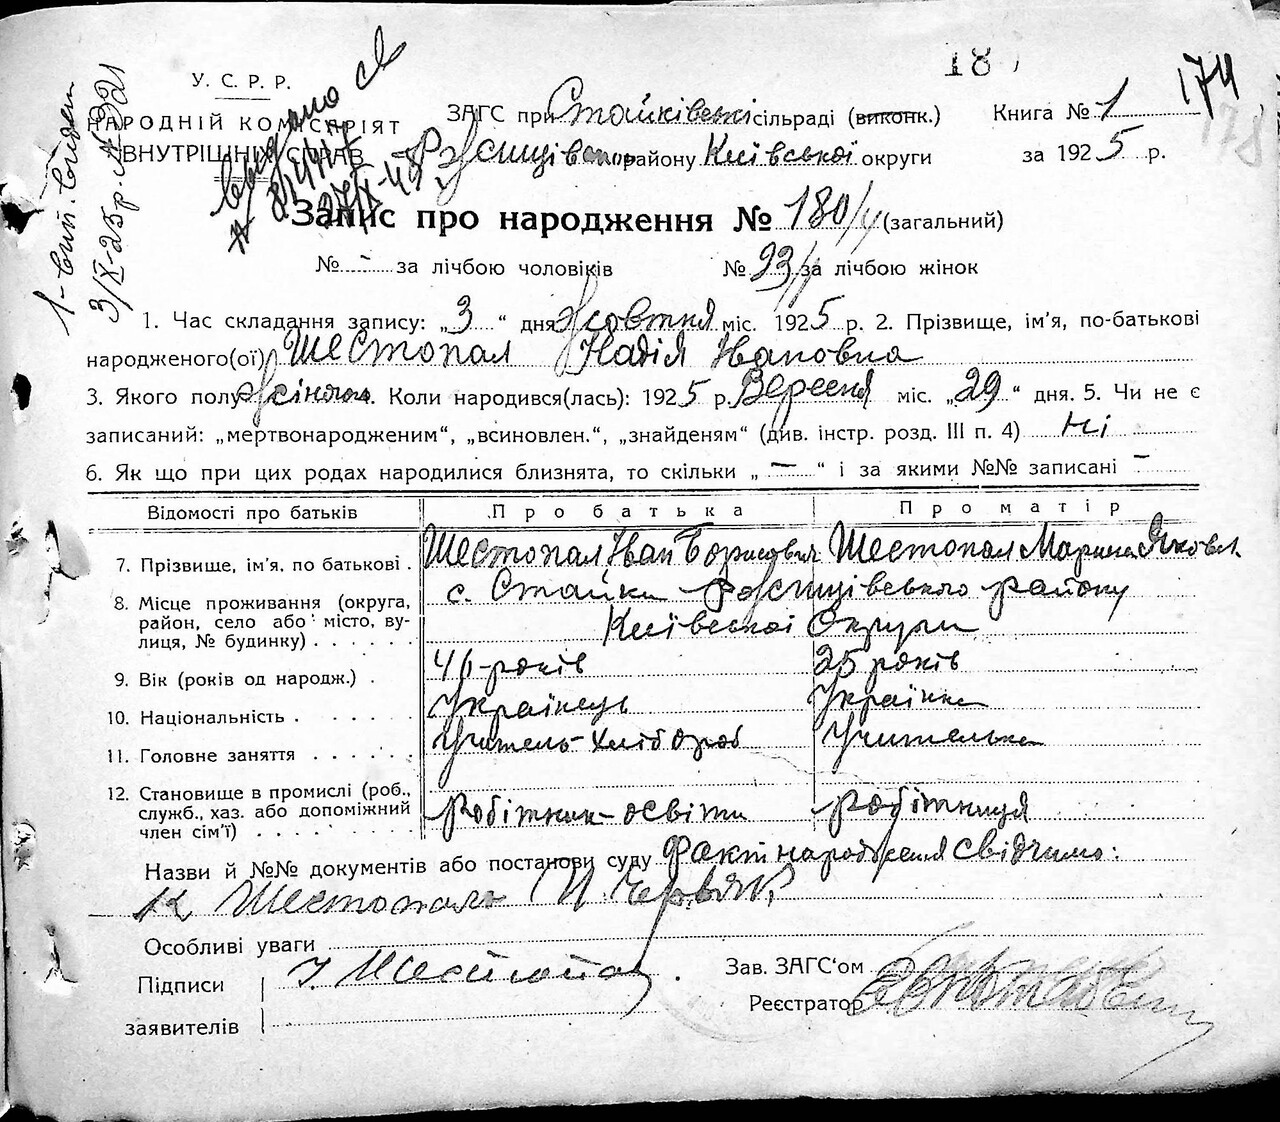 18
174
178
У. С. Р. Р.
НАРОДНІЙ КОМІСАРІЯТ
ВНУТРІШНІХ СПРАВ
ЗАГС при Стайківській сільраді (виконк.) Книга № 1
Ржищівськ. району Київської округи за 1925 р.
Запис про народження № 180/ч (загальний)
№ - за лічбою чоловіків № 93/ за лічбою жінок
1. Час складання запису: „3“ дня Жовтня міс. 1925 р. 2. Прізвище, ім'я, по-батькові
народженого(ої) Шестопал Надія Івановна
3. Якого полу Жіночого. Коли народився(лась): 1925 р. Вересня міс. „29“ дня. 5. Чи не є
записаний: „мертвонародженим“, „всиновлен.“, „знайденям“ (див. інстр. розд. III п. 4) Ні
6. Як що при цих родах народилися близнята, то скільки „—“ і за якими №№ записані -
Відомості про батьків Про батька Про матір
7. Прізвище, ім'я, по батькові . Шестопал Іван Борисович Шестопал Марина Яковл.
8. Місце проживання (округа, район, село або місто, вулиця, № будинку) с. Стайки Ржищівського району
Київської Округи
9. Вік (років од народж.) . 46 років 25 років
10. Національність . Українець Українка
11. Головне заняття . Учитель-хлібороб Учителька
12. Становище в промислі (роб., служб., хаз. або допоміжний член сім'ї) . Робітник-освіти робітниця
Назви й №№ документів або постанови суду Факт народження свідчимо:
Шестопаль
Особливі уваги
Підписи І. Шестопал. Зав. ЗАГС'ом
заявителів Реєстратор
1- вит. видан
3/IX-25 р.
видано св